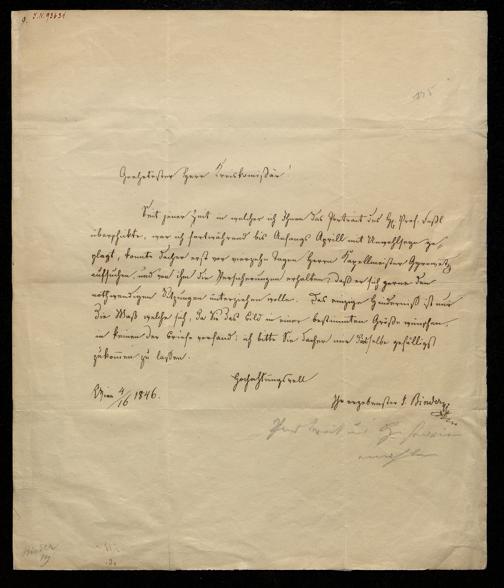 I.N. 93631
115
Geehrtester Herr Kreiskomißär!
Seit jener Zeit in welcher ich Ihnen das Portrait des H. Prof.
überschikte, war ich fortwährend bis Anfangs Aprill mit Unpäßlichkeit ge-
plagt, konnte daher erst vor vierzehn Tagen Herrn Kapellmeister Gyrowetz
aufsuchen, und von ihm die Versicherungen erhalten, daß er sich gerne den
nothwendigen Sitzungen unterziehen wolle. Das einzige Hinderniß ist nur
die Maß welche sich, da Sie das Bild in einer bestimmten Größe wünschen,
in keinem der Briefe vorfand; ich bitte Sie daher mir dasselbe gefälligst
zukommen zu lassen.
Hochachtungsvoll
Wien 4/16 1846.
Ihr ergebenster J Binder
Binder